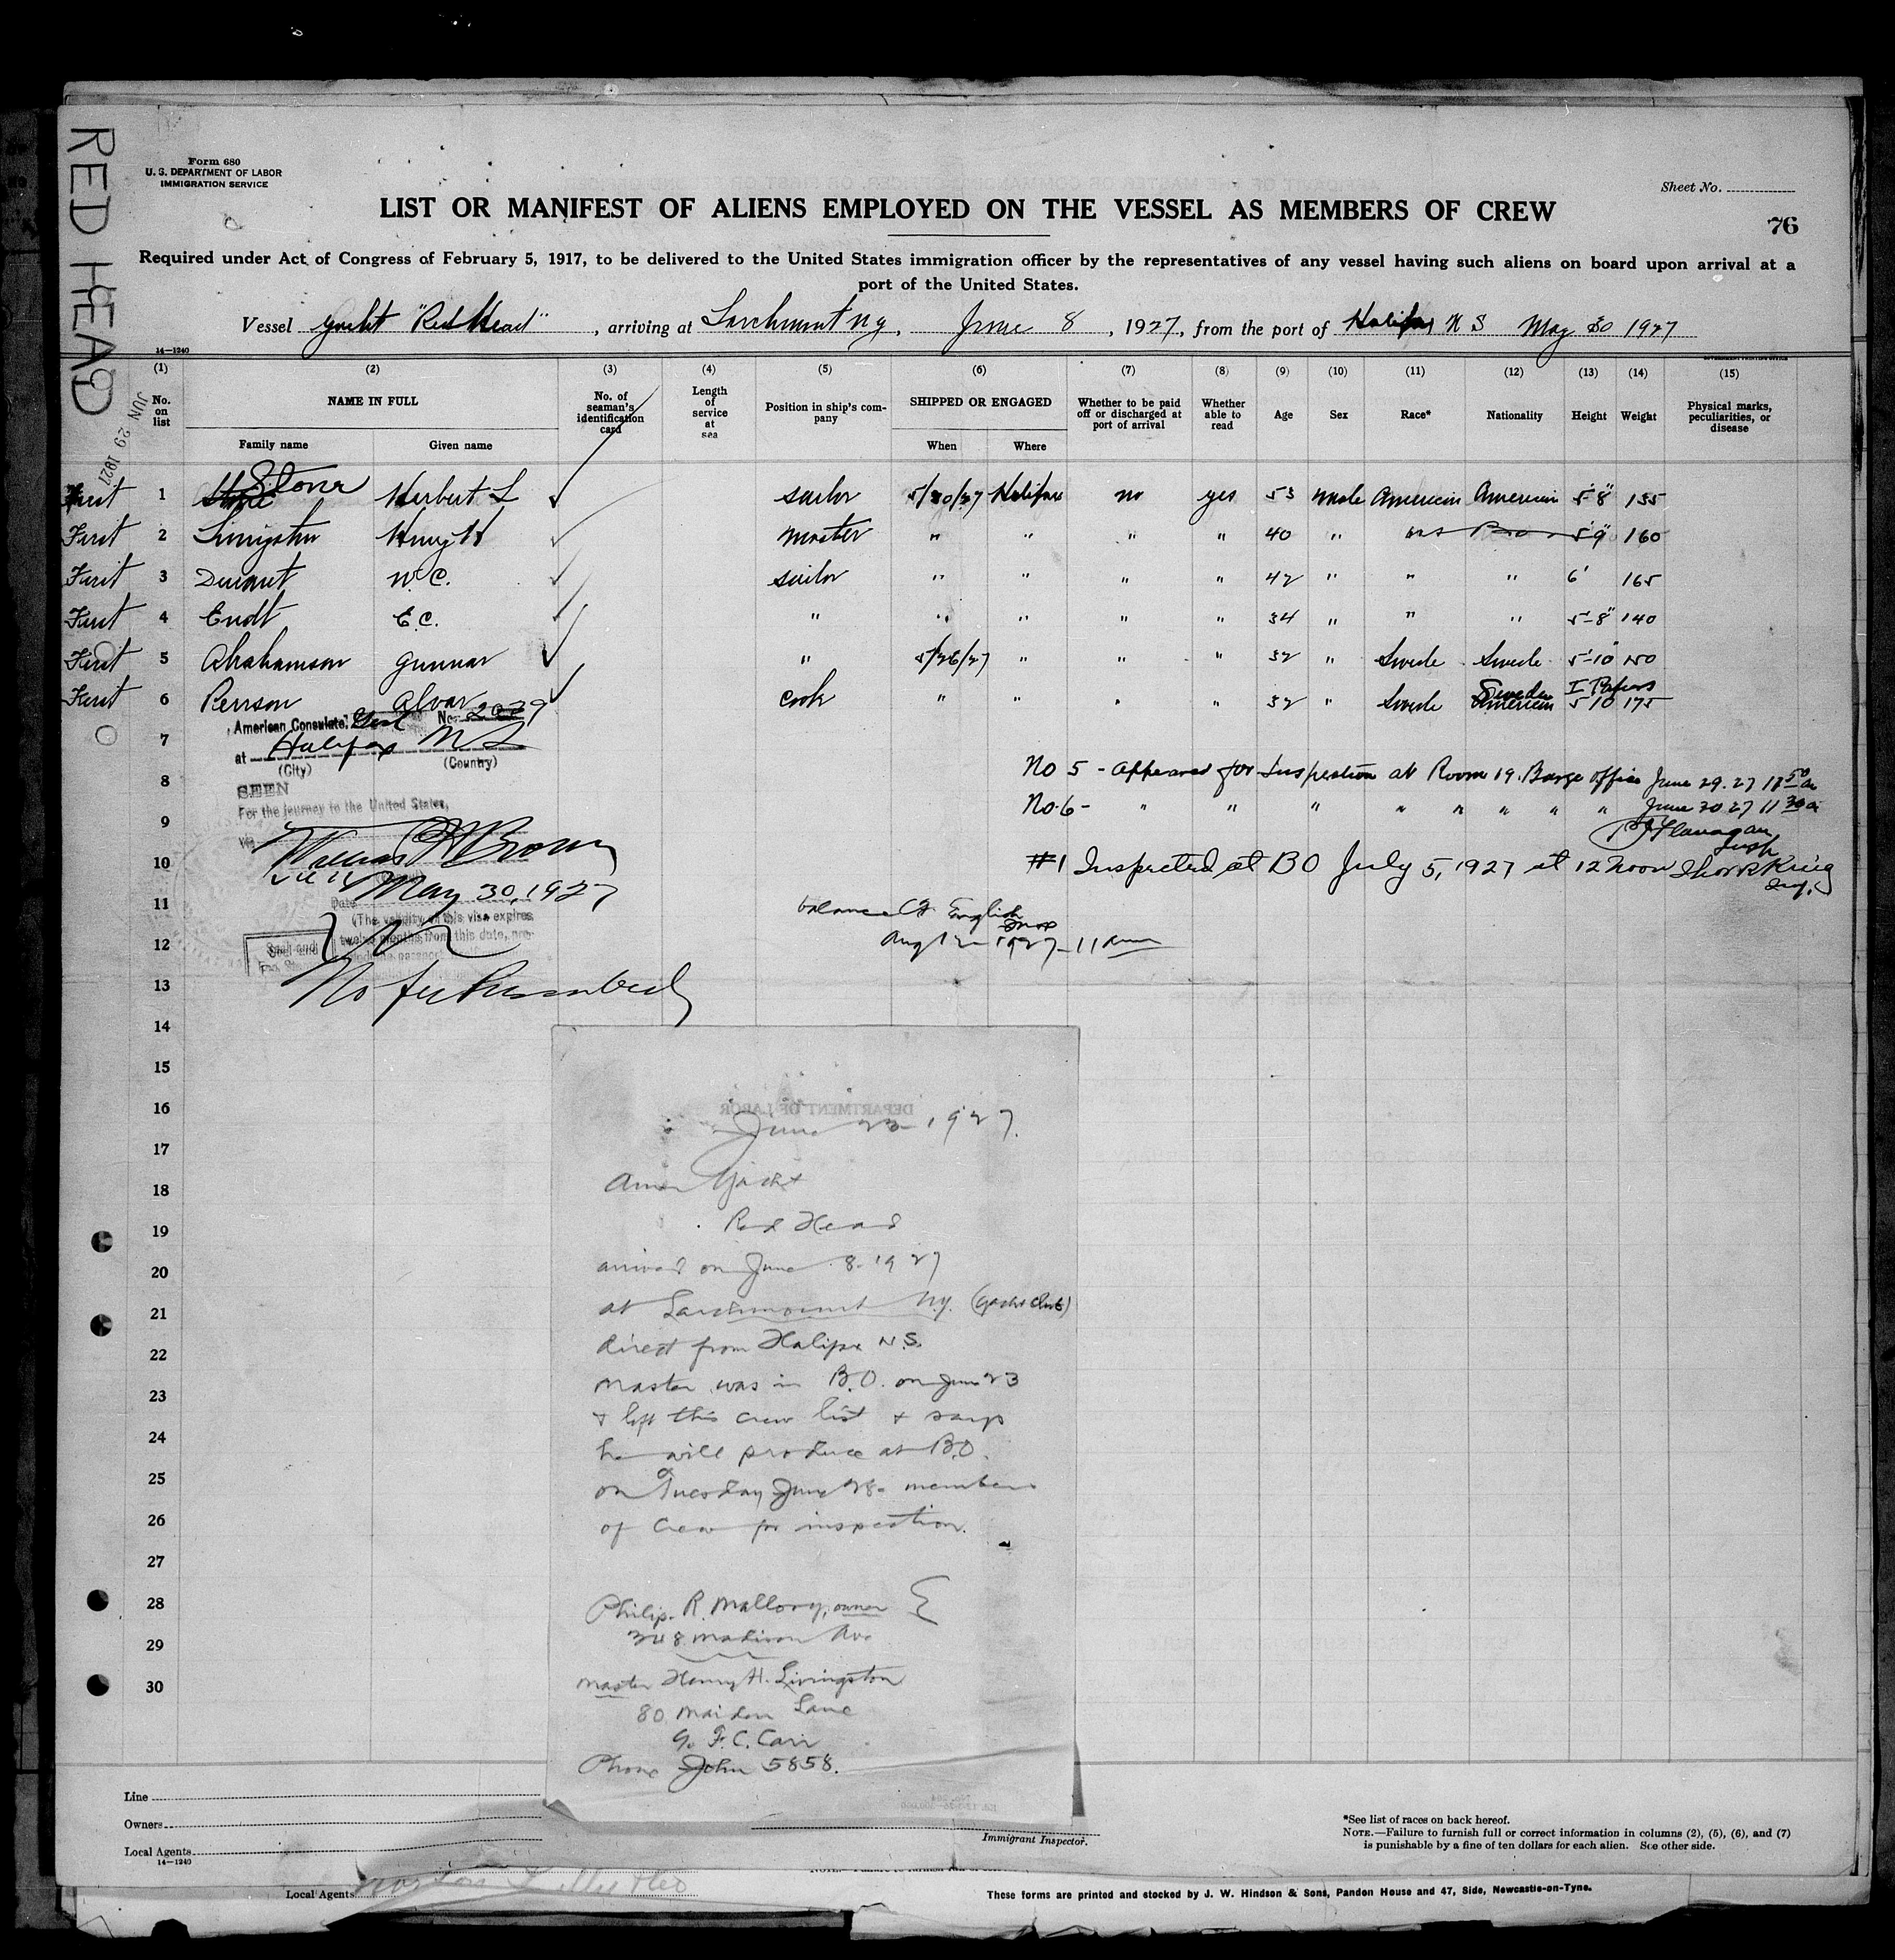 RED HEAD
Form 680
U. S. DEPARTMENT OF LABOR
IMMIGRATION SERVICE
Sheet No.
LIST OR MANIFEST OF ALIENS EMPLOYED ON THE VESSEL AS MEMBERS OF CREW
76
Required under Act of Congress of February 5, 1917, to be delivered to the United States immigration officer by the representatives of any vessel having such aliens on board upon arrival at a
port of the United States.
Vessel Yacht "Red Head", arriving at Larchmont NY, June 8, 1927, from the port of Halifax N S May 30 1927
14—1240
JUN 29 1927
(1) (2) (3) (4) (5) (6) (7) (8) (9) (10) (11) (12) (13) (14) (15)
No. on list
NAME IN FULL
Family name Given name
No. of seaman's identification card
Length of service at sea
Position in ship's company
SHIPPED OR ENGAGED
When Where
Whether to be paid off or discharged at port of arrival
Whether able to read
Age Sex Race* Nationality Height Weight
Physical marks, peculiarities, or disease
First 1 Stone Herbert L sailor 5/30/27 Halifax no yes 53 male American American 5'8" 155
First 2 Livingston Henry H master " " " " 40 " " 5'9" 160
First 3 Durant W.C. sailor " " " " 42 " " " 6' 165
First 4 Endt E.C. " " " " " 34 " " " 5-8" 140
First 5 Abrahamson Gunnar " 5/26/27 " " " 32 " Swede Swede 5-10" 150
First 6 Persson Alvar cook " " " " 32 " Swede Sweden American I Papers 5 10 175
American Consulate Genl No. 2039
7
at Halifax N S
(City) (Country)
8
SEEN
For the journey to the United States,
No 5 - Appeared for Inspection at Room 19. Barge office June 29. 27 11 50 a
No. 6 - " " " " " " " June 30 27 11 30 a
9
PJ Flanagan
Insp
10
#1 Inspected at BO July 5, 1927 at 12 Noon
May 30, 1927
Date
11
(The validity of this visa expires
twelve months from this date,
balance
English
Insp
12
Aug 12 - 1927 - 11 am
Seal and
13
No fee Prescribed
14
15
16
DEPARTMENT OF LABOR
June 23 - 1927.
17
18
Amer Yacht
19
Red Head
20
arrived on June 8. 1927
21
at Larchmount N.Y. (Yacht Club)
22
direct from Halifax N.S.
23
master was in B.O. on June 23
& left this crew list & says
24
he will produce at B.O.
25
on Tuesday June 28 - members
26
of crew for inspection.
27
28
Philip. R. Mallory, owner
29
348 Madison Ave
30
master Henry H. Livingston
80 Maiden Lane
c/o F. C. Carr
Phone John 5858.
Line
Owners
Local Agents
14—1240
Immigrant Inspector.
*See list of races on back hereof.
NOTE.—Failure to furnish full or correct information in columns (2), (5), (6), and (7)
is punishable by a fine of ten dollars for each alien. See other side.
Local Agents
These forms are printed and stocked by J. W. Hindson & Sons, Pandon House and 47, Side, Newcastle-on-Tyne.